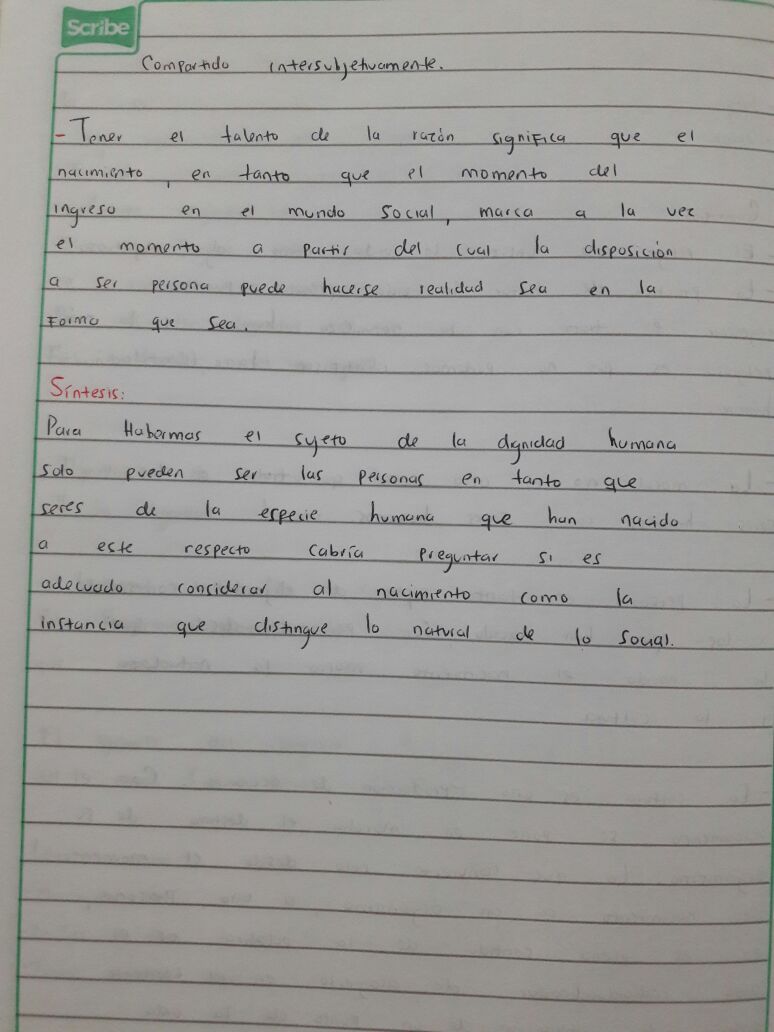 Scribe
Compartido intersubjetivamente.
- Tener el talento de la razón significa que el
nacimiento, en tanto que el momento del
ingreso en el mundo social, marca a la vez
el momento a partir del cual la disposición
a ser persona puede hacerse realidad sea en la
Forma que sea.
Síntesis:
Para Habermas el sujeto de la dignidad humana
solo pueden ser las personas en tanto que
seres de la especie humana que han nacido
a este respecto cabría preguntar si es
adecuado considerar al nacimiento como la
instancia que distingue lo natural de lo social.